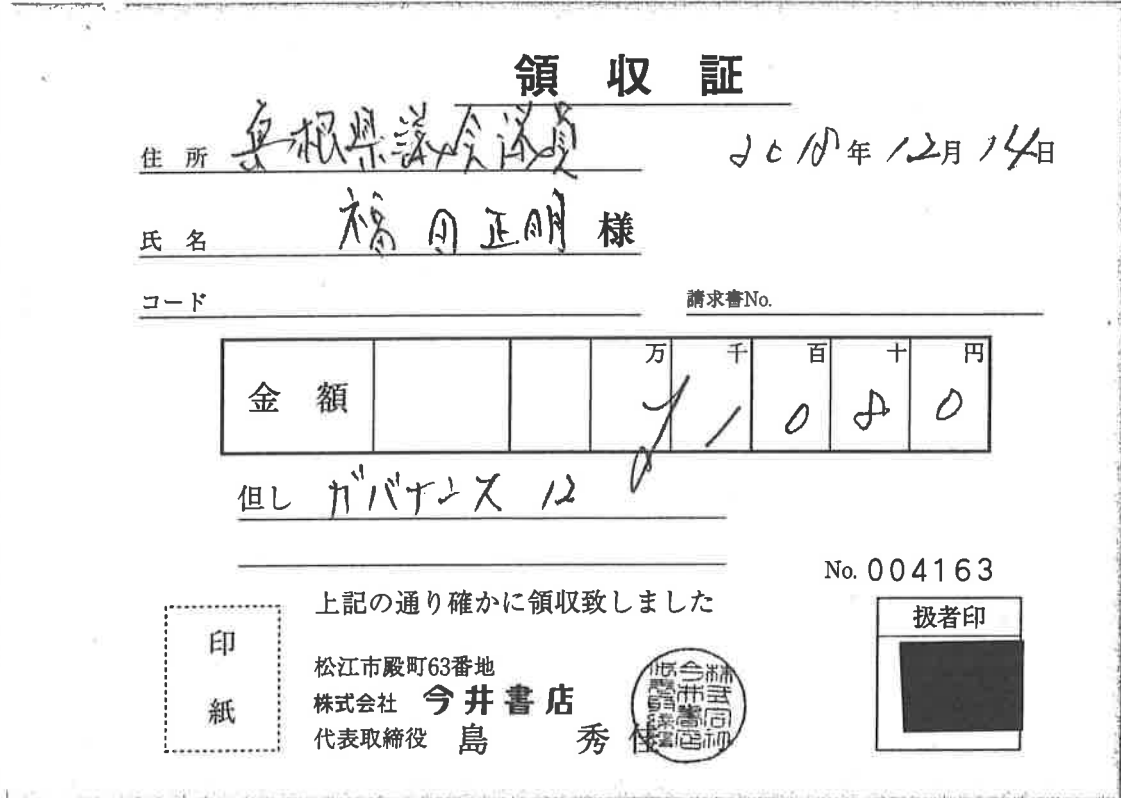 領収証
住所 島根県議会議員 2018年12月14日
氏名 福田正明 様
コード 請求書No.
金額 万 千 百 十 円
¥1080
但し ガバナンス 12
No. 004163
上記の通り確かに領収致しました
扱者印
印紙
松江市殿町63番地
株式会社 今井書店
代表取締役 島 秀佳